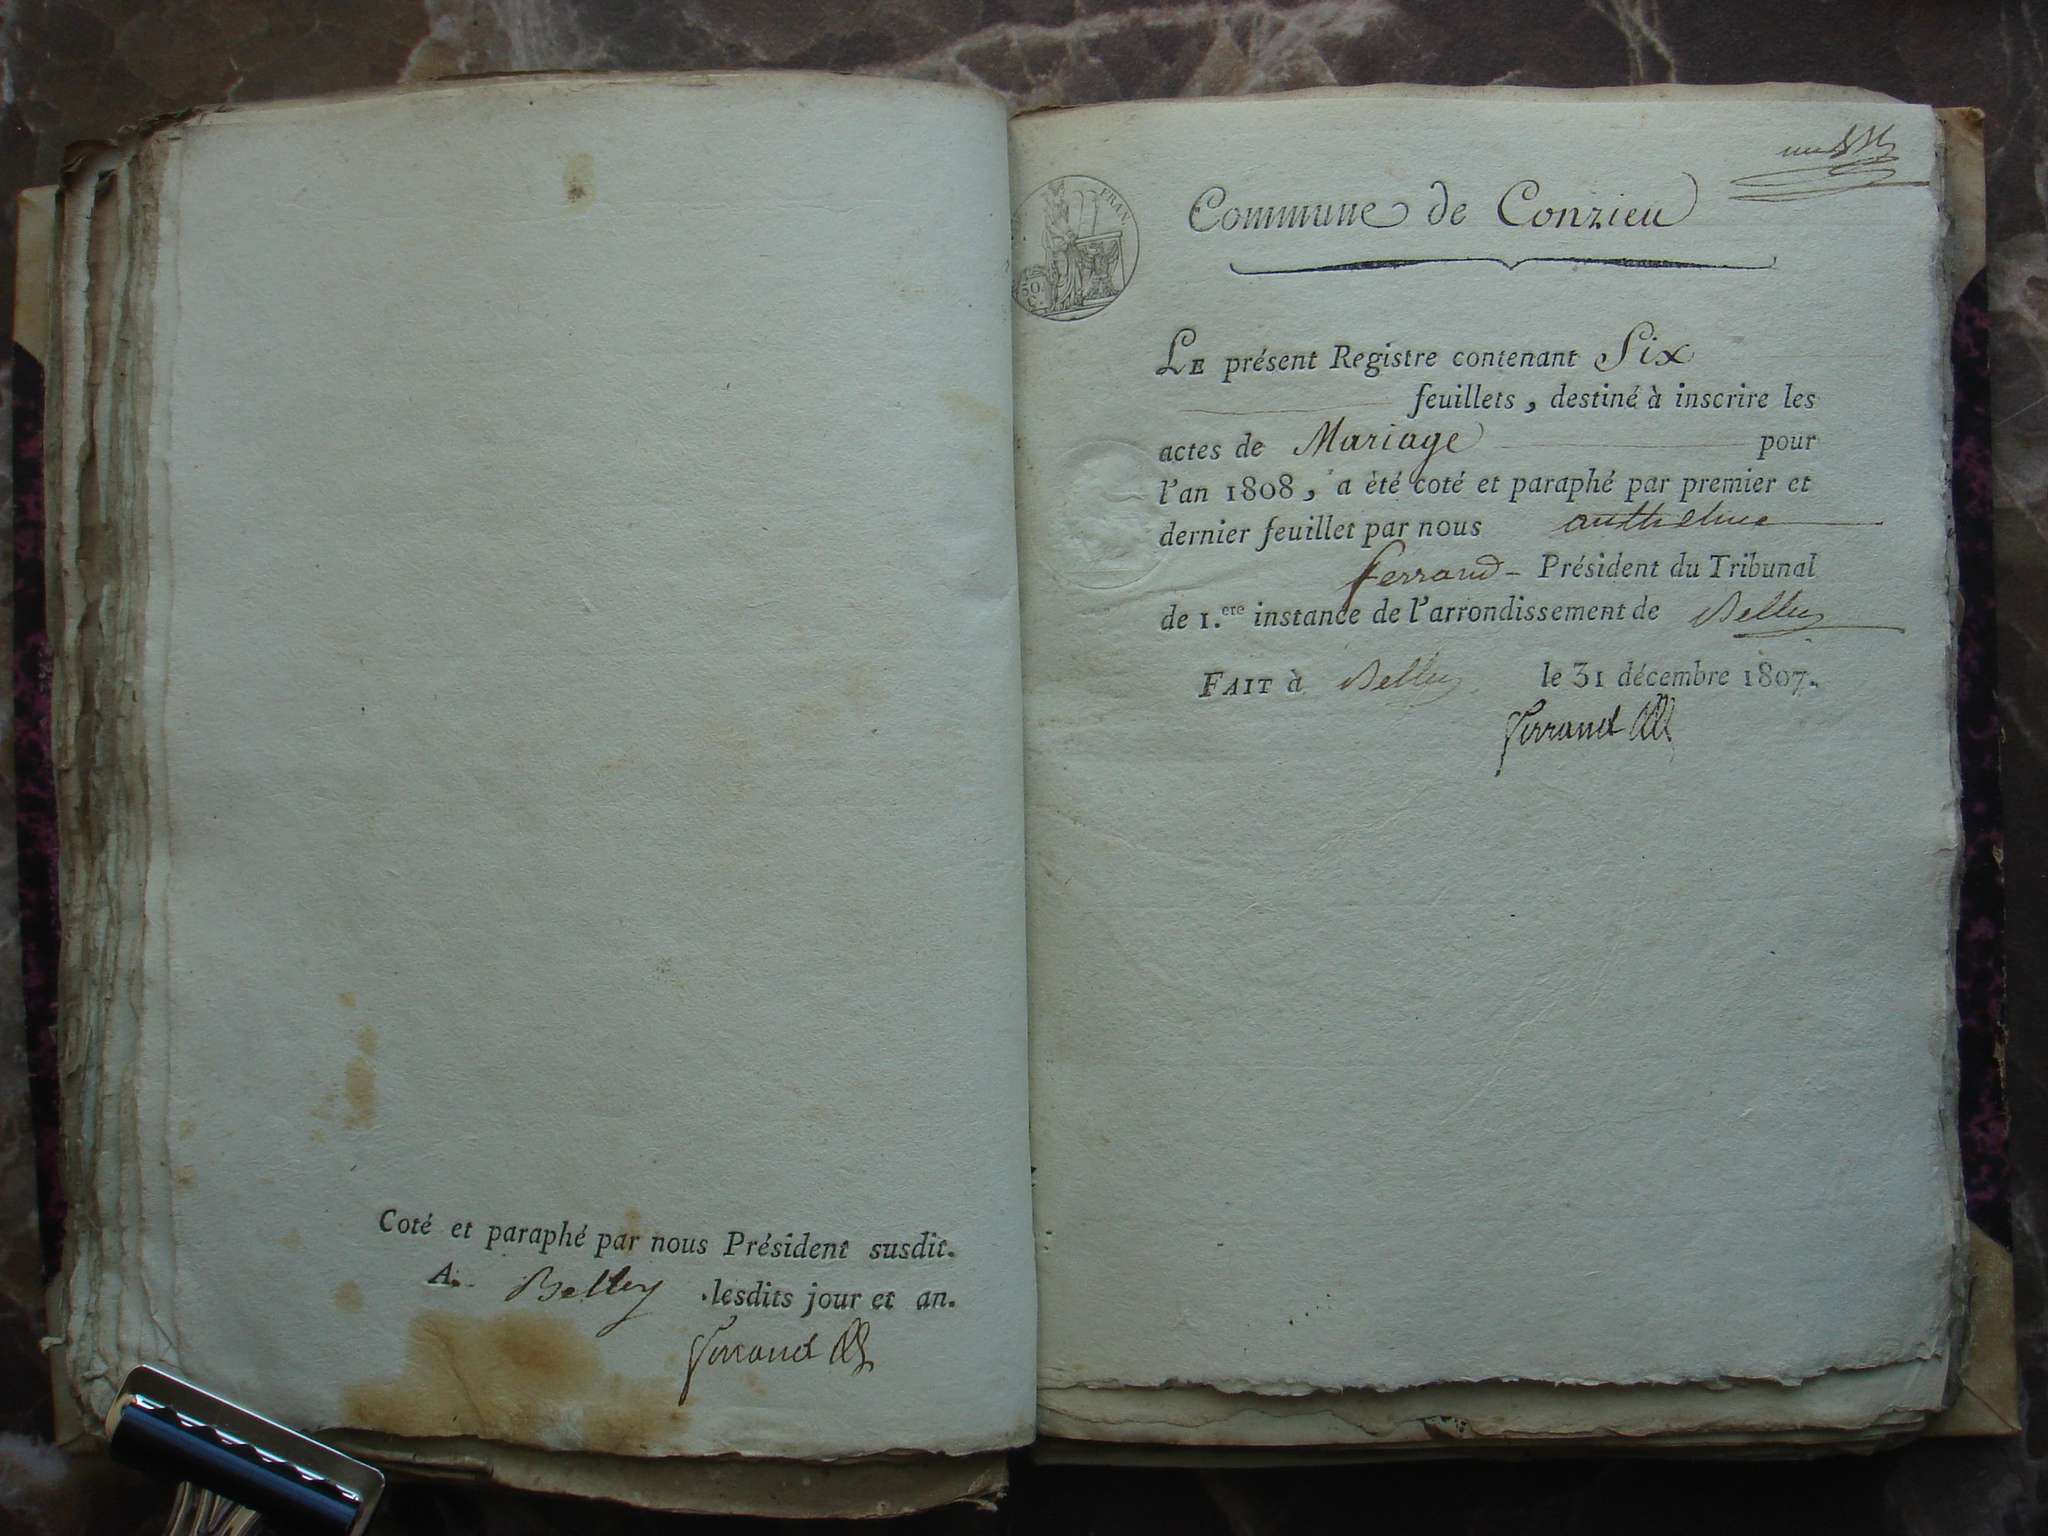 Coté et paraphé par nous Président susdit.
A Belley lesdits jour et an.
Ferrand
FRAN.
50
C.
Commune de Conzieu
LE présent Registre contenant Six
feuillets, destiné à inscrire les
actes de Mariage pour
l'an 1808, a été coté et paraphé par premier et
dernier feuillet par nous anthelme
ferrand - Président du Tribunal
de 1.ere instance de l'arrondissement de Belley
FAIT à Belley le 31 décembre 1807.
Ferrand